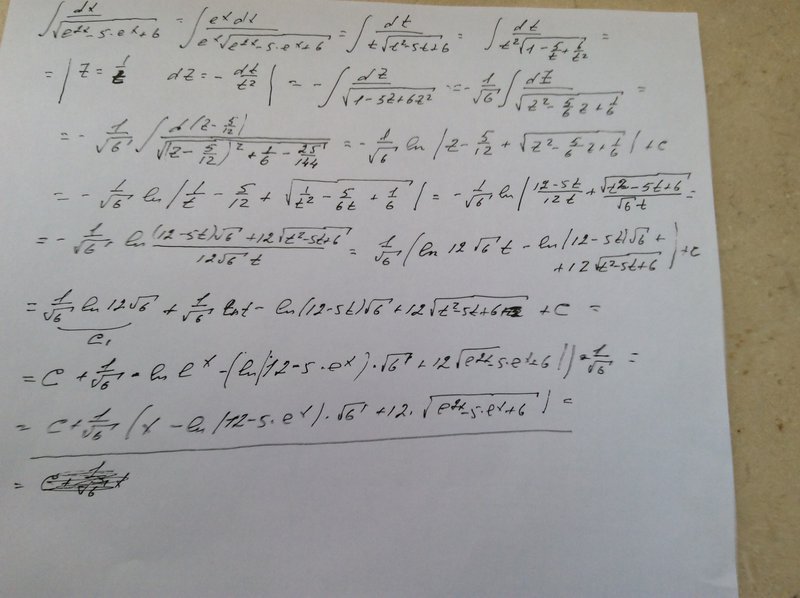 ∫ dx/√(e^{2x}-5·e^x+6) = ∫ e^x dx/(e^x √(e^{2x}-5·e^x+6)) = ∫ dt/(t√(t²-5t+6)) = ∫ dt/(t²√(1-5/t+6/t²)) =
= | z = 1/t dz = - dt/t² | = - ∫ dz/√(1-5z+6z²) = - 1/√6 ∫ dz/√(z²-5/6 z+1/6) =
= - 1/√6 ∫ d(z-5/12)/√((z-5/12)²+1/6-25/144) = - 1/√6 ln |z-5/12+√(z²-5/6 z+1/6)| +c
= - 1/√6 ln |1/t - 5/12 + √(1/t² - 5/6t + 1/6)| = - 1/√6 ln |(12-5t)/12t + √(t²-5t+6)/√6 t| =
= - 1/√6 ln ((12-5t)√6+12√(t²-5t+6))/(12√6 t) = 1/√6 (ln 12√6 t - ln |(12-5t)√6 +
+12√(t²-5t+6)|) +c
= 1/√6 ln 12√6 + 1/√6 ln t - ln (12-5t)√6+12√(t²-5t+6) + C =
C₁
= C + 1/√6 · ln e^x - (ln|(12-5·e^x)·√6 + 12√(e^{2x}-5·e^x+6)|) · 1/√6 =
= C + 1/√6 (x - ln |12-5·e^x)·√6 +12·√(e^{2x}-5·e^x+6)| =
=